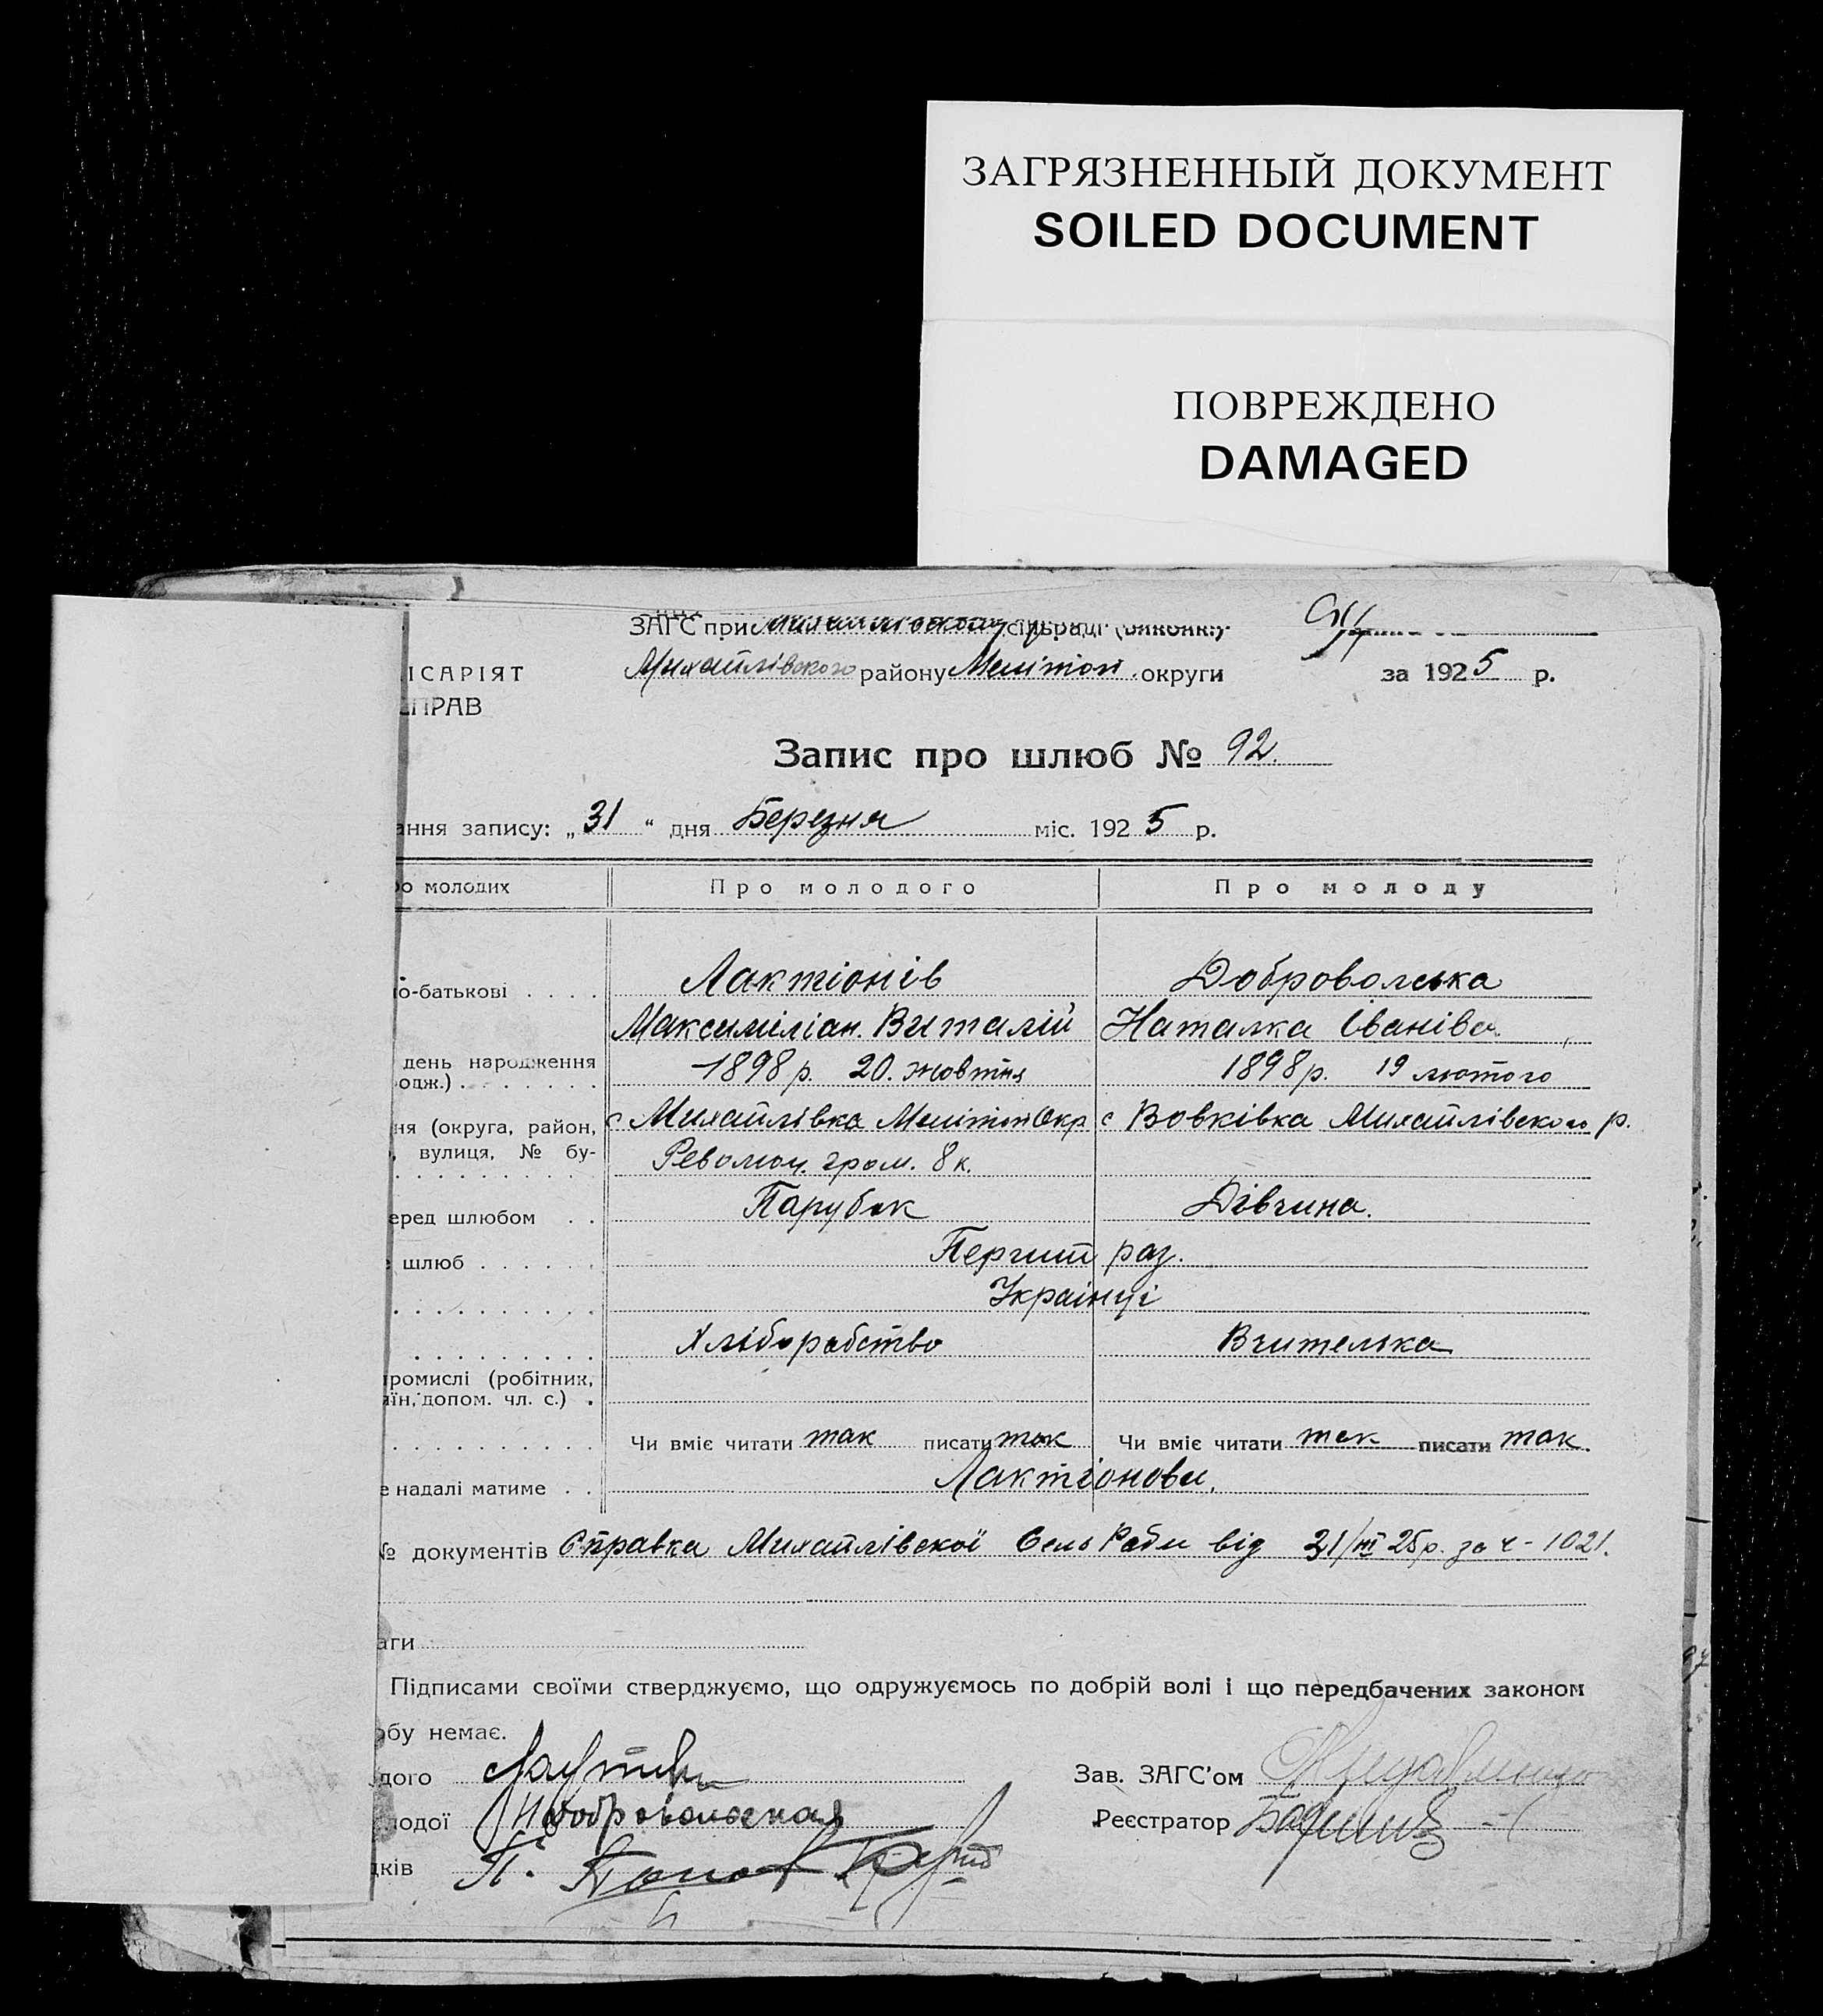 ЗАГРЯЗНЕННЫЙ ДОКУМЕНТ
SOILED DOCUMENT
ПОВРЕЖДЕНО
DAMAGED
ЗАГС при сільраді (виконк.)
ІСАРІЯТ Михайлівского району Мелітоп. округи за 1925 р.
СПРАВ
Запис про шлюб № 92.
ання запису: „31“ дня Березня міс. 1925 р.
ро молодих Про молодого Про молоду
о-батькові Лактіонів Доброволська
Максиміліан. Виталій Наталка Іванівна
день народження
одж.) 1898 р. 20. жовтня 1898 р. 19 лютого
ня (округа, район, с Михайлівка Мелітоп Окр с Вовківка Михайлівского р.
, вулиця, № бу- Революц. гром. 8 к.
еред шлюбом Парубок Дівчина.
шлюб Перший раз.
Українці
Хліборобство Вчителька
ромислі (робітник,
їн, допом. чл. с.)
Чи вміє читати так писати так Чи вміє читати так писати так.
е надалі матиме Лактіонови.
№ документів Справка Михайлівскої Сель Ради від 31/III 25 р. за ч - 1021.
аги
Підписами своїми стверджуємо, що одружуємось по добрій волі і що передбачених законом
обу немає.
дого Зав. ЗАГС'ом
лодої Н Добровольская Реєстратор
дків П. Попов